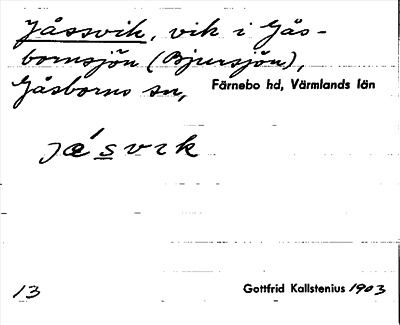 Jåssvik, vik i Gås-
bornsjön (Bjursjön),
Gåsborns sn, Färnebo hd, Värmlands län
jǽsvik
13 Gottfrid Kallstenius 1903